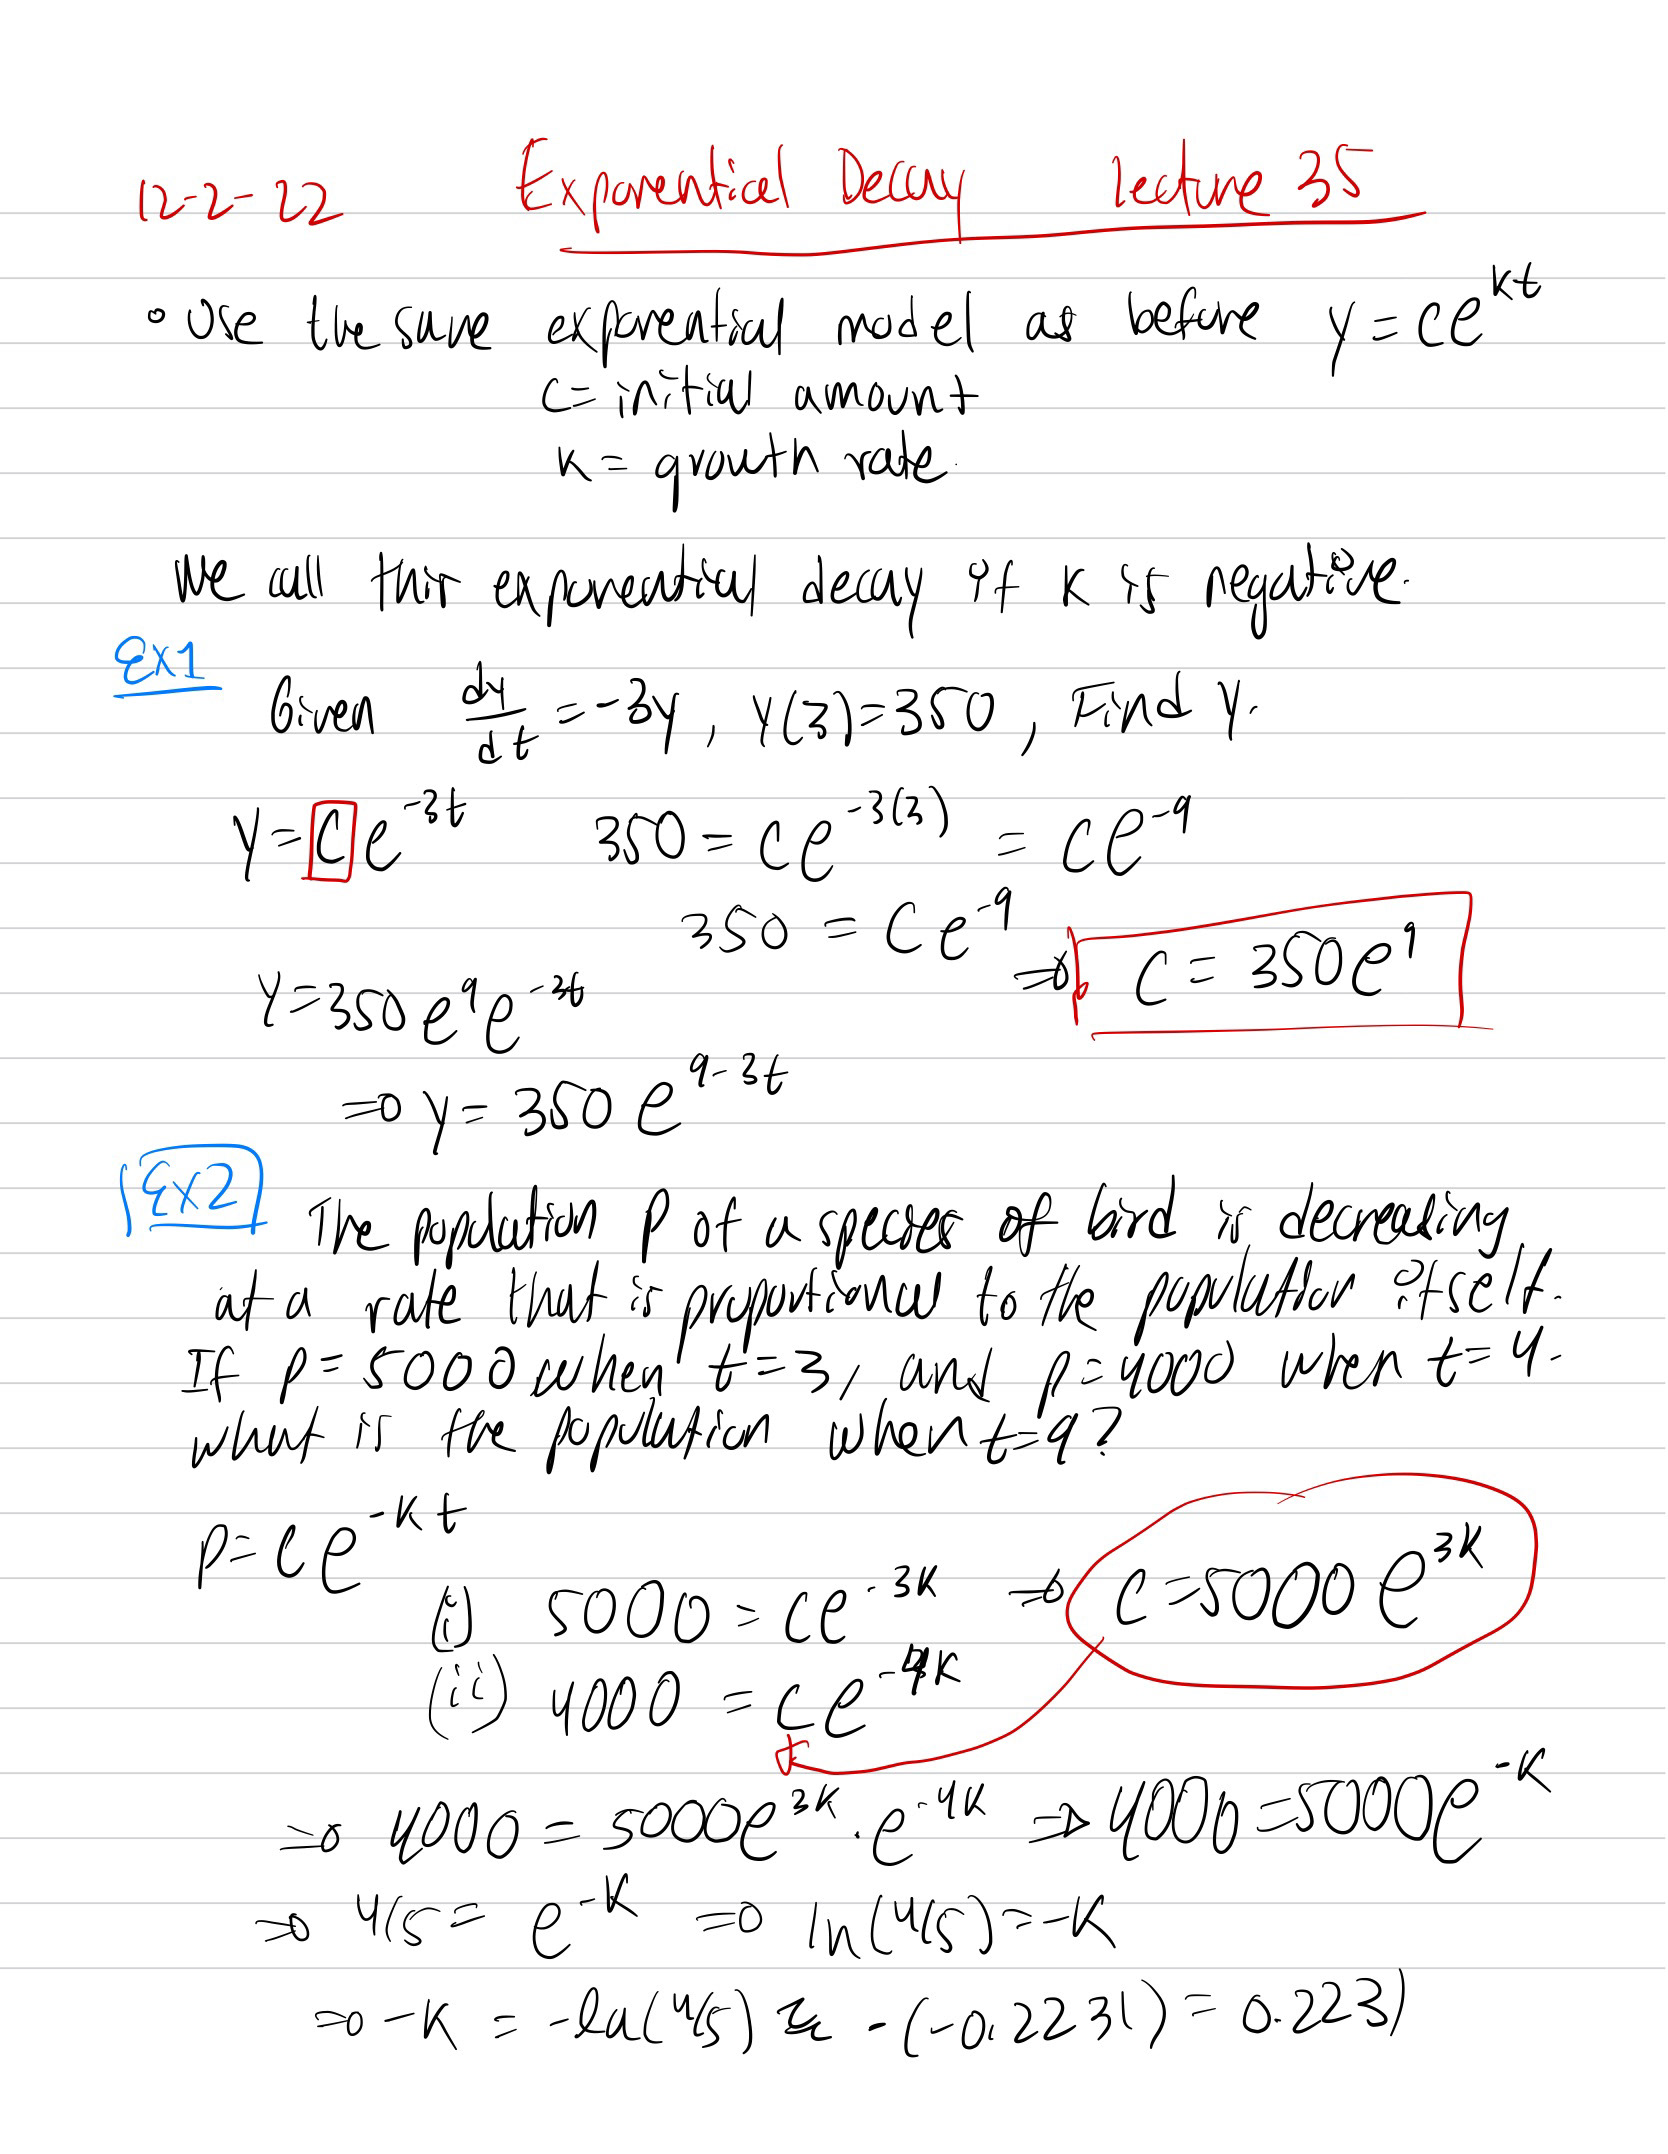 12-2-22 Exponential Decay lecture 35
• Use the same exponential model as before y = ce^{kt}
c = initial amount
k = growth rate.
We call this exponential decay if k is negative.
Ex1
Given dy/dt = -3y, y(3) = 350, Find y.
y = ce^{-3t} 350 = ce^{-3(3)} = ce^{-9}
350 = Ce^{-9} ⇒ C = 350e^9
y = 350e^9e^{-3t}
⇒ y = 350 e^{9-3t}
Ex2 The population P of a species of bird is decreasing
at a rate that is proportional to the population itself.
If p = 5000 when t = 3, and p = 4000 when t = 4.
what is the population when t = 9?
p = ce^{-kt}
(i) 5000 = ce^{-3k} ⇒ c = 5000 e^{3k}
(ii) 4000 = ce^{-4k}
⇒ 4000 = 5000e^{3k} · e^{-4k} ⇒ 4000 = 5000e^{-k}
⇒ 4/5 = e^{-k} ⇒ ln(4/5) = -k
⇒ -k = -ln(4/5) ≈ -(-0.2231) = 0.2231